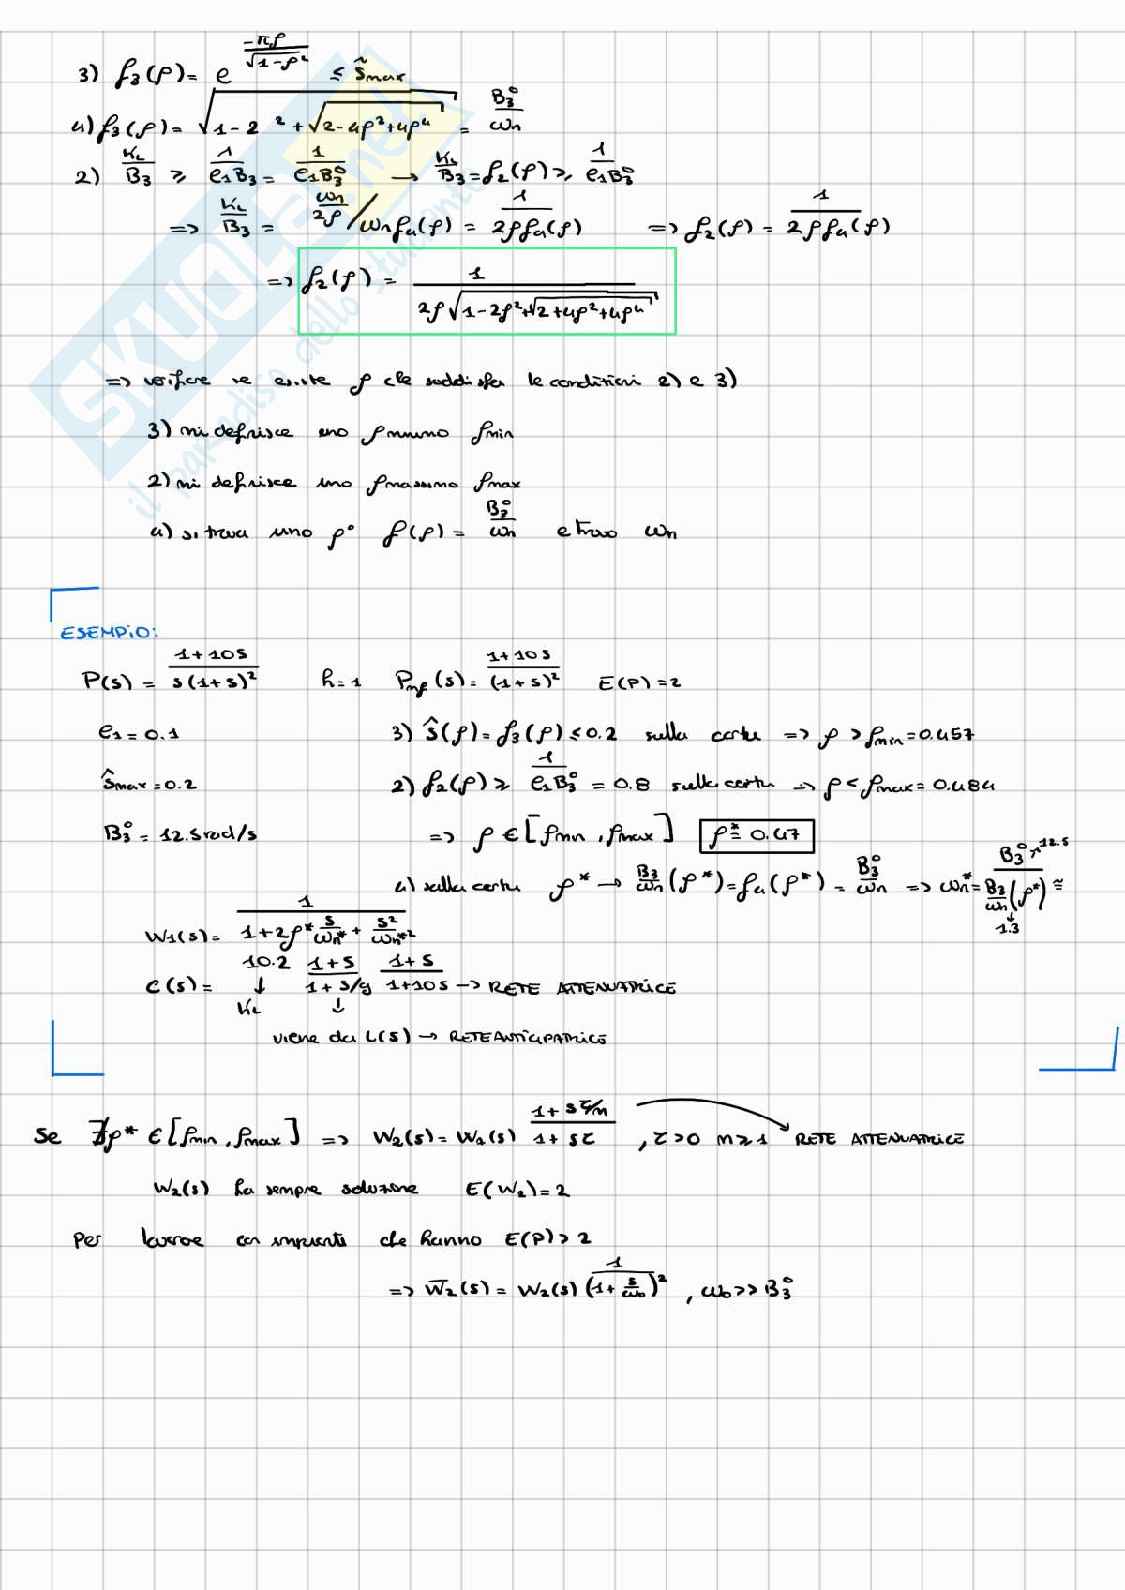 3) f₃(ρ) = e^(-πρ/√(1-ρ²)) ≤ ŝmax
4) f₃(ρ) = √(1-2 ² + √(2-4ρ²+4ρ⁴)) = B₃°/ωn
2) K_L/B₃ ≥ 1/(e₁B₃) = 1/(e₁B₃°) → K_L/B₃ = f₂(ρ) ≥ 1/(e₁B₃°)
=> K_L/B₃ = ωn/2ρ / ωn f₄(ρ) = 1/(2ρ f₄(ρ)) => f₂(ρ) = 1/(2ρ f₄(ρ))
=> f₂(ρ) = 1/(2ρ√(1-2ρ²+√(2+4ρ²+4ρ⁴)))
=> verificare se esiste ρ che soddisfa le condizioni 2) e 3)
3) mi definisce uno ρminimo ρmin
2) mi definisce uno ρmassimo ρmax
4) si trova uno ρ° f(ρ) = B₃°/ωn e trovo ωn
ESEMPIO:
P(s) = (1+10s)/(s(1+s)²) h=1 Pmf(s) = (1+10s)/(1+s)² E(P)=2
e₁=0.1 3) ŝ(ρ) = f₃(ρ) ≤ 0.2 sulla carta => ρ > ρmin = 0.457
ŝmax = 0.2 2) f₂(ρ) ≥ 1/(e₁B₃°) = 0.8 sulla carta → ρ < ρmax = 0.484
B₃° = 12.5 rad/s => ρ ∈ [ρmin, ρmax] ρ* ≅ 0.47
4) sulla carta ρ* → B₃/ωn (ρ*) = f₄(ρ*) = B₃°/ωn => ωn* = B₃°/(B₃/ωn (ρ*)) ≅
12.5
1.3
W₁(s) = 1/(1+2ρ* s/ωn* + s²/ωn*²)
C(s) = 10.2 (1+s)/(1+s/9) (1+s)/(1+10s) → RETE ATTENUATRICE
↓ K_L ↓
viene da L(s) → RETE ANTICIPATRICE
Se ∄ρ* ∈ [ρmin, ρmax] => W₂(s) = W₁(s) (1+sτ/m)/(1+sτ) , τ>0 m≥1 RETE ATTENUATRICE
W₂(s) ha sempre soluzione E(W₂)=2
Per lavorare con impianti che hanno E(P)>2
=> W̅₂(s) = W₂(s) 1/(1+s/ω₀)² , ω₀ >> B₃°
SKUOLA.net
il paradiso dello studente